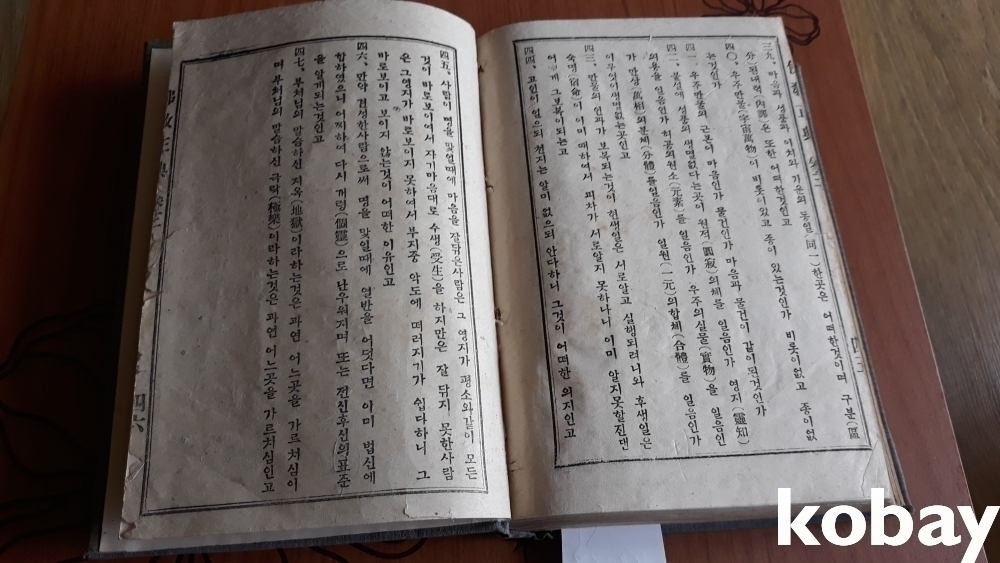 三九、마음과 성품과 이치와 기운의 동일(同一)한곳은 어떠한것이며 구분(區
分)된내역(內譯)은 또한 어떠한것인고
四〇、우주만물(宇宙萬物)이 비롯이있고 종이 있는것인가 비롯이없고 종이없
는것인가
四一、우주만물의 근본이 마음인가 물건인가 마음과 물건이 같이된것인가
四二、불설에 성품의 생멸없다는곳이 원적(圓寂)의체를 일음인가 영지(靈知)
의용을 일음인가 허공의원소(元素)를 일음인가 우주의실물(實物)을 일음인
가 만상(萬相)의분체(分體)를일음인가 일원(一元)의합체(合體)를 일음인가
이무엇이생멸없는곳인고
四三、만물의 인과가 보복되는것이 현생일은 서로알고 실행되려니와 후생일은
숙명(宿命)이 이미 매하여서 피차가 서로알지 못하나니 이미 알지못할진댄
어떻게 그보복이되는고
四四、고인이 일으되 천지는 알미 없으되 안다하니 그것이 어떠한 의지인고
四五、사람이 명을 맞일때에 마음을 잘닦은사람은 그 영지가 평소와같이 모든
것이 바로보이여서 자기마음대로 수생(受生)을 하지만은 잘 닦지 못한사람
은 그영지가 바로보이지 못하여서 부지중 악도에 떠러지기가 쉽다하니 그
바로보이고 보이지 않는것이 어떠한 이유인고
四六、만약 견성한사람으로써 명을 맞일때에 열반을 어덧다면 이미 법신에
합하였으니 어찌하여 다시 개령(個靈)으로 난우워지며 또는 전신후신의표준
을 알게되는것인고
四七、부처님의 말슴하신 지옥(地獄)이라하는것은 과연 어느곳을 가르처심이
며 부처님의 말슴하신 극락(極樂)이라하는것은 과연 어느곳을 가르처심인고
四六
kobay